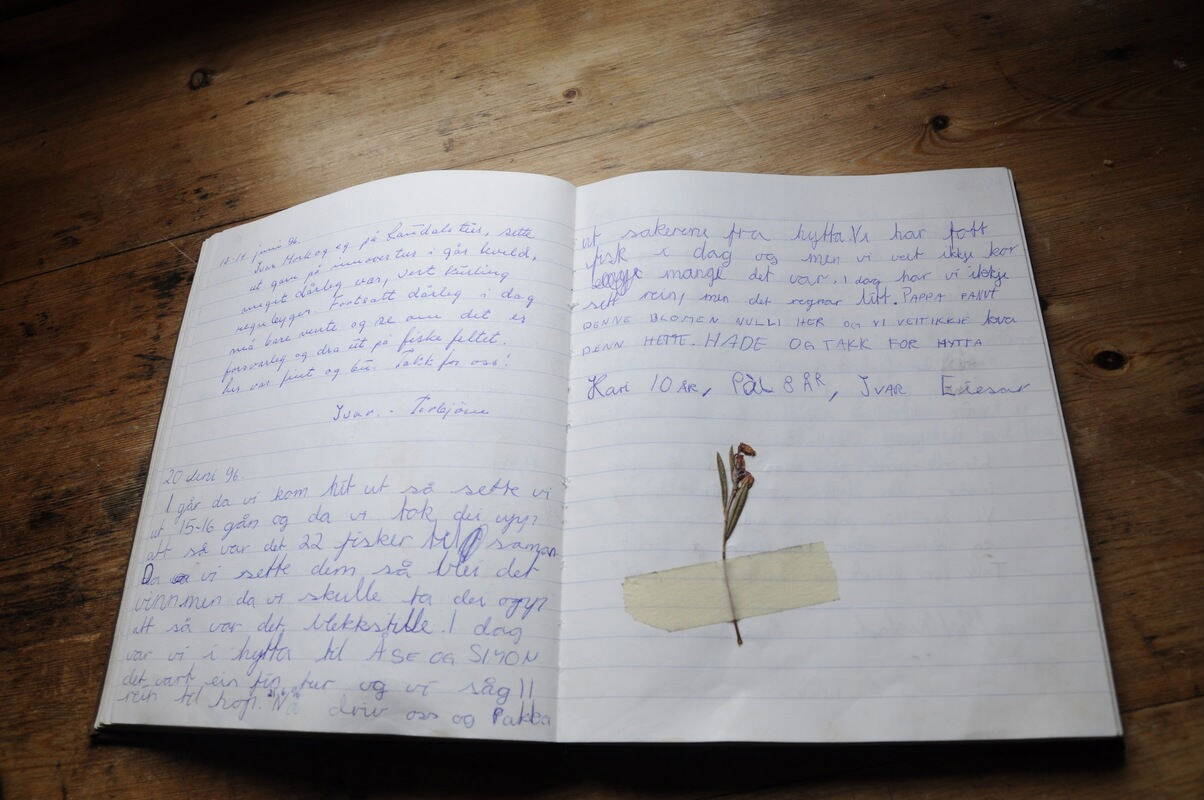 juni 96.
Ivar Mork og eg på tur, sette
ut garn på innovertur i går kveld,
meget dårleg var, vert kuling
regnbyger. Fortsatt dårleg i dag
må bare vente og se om det er
forsvarleg og dra ut på fiske feltet.
her var fint og bu. Takk for oss!
Ivar. - Torbjørn
20 juni 96.
I går da vi kom hit ut så sette vi
ut 15-16 gån og da vi tok dei upp
att så var det 22 fisker til saman
Da vi sette dem så blei det
vinn men da vi skulle ta dei opp
att så var det blekkstille. I dag
var vi i hytta til ÅSE OG SIMON
det vart ein fin tur og vi såg 11
rein til hop. Nå driv oss og Pakka
ut sakerene fra hytta. Vi har fått
fisk i dag og men vi veit ikkje kor
mange det var. I dag har vi ikkje
sett rein, men det regnar litt. PAPPA FANNT
DENNE BLOMEN HER OG VI VEIT IKKJE hva
DENN HETTE. HADE OG TAKK FOR HYTTA
Kari 10 ÅR, Pål 8 ÅR, IVAR